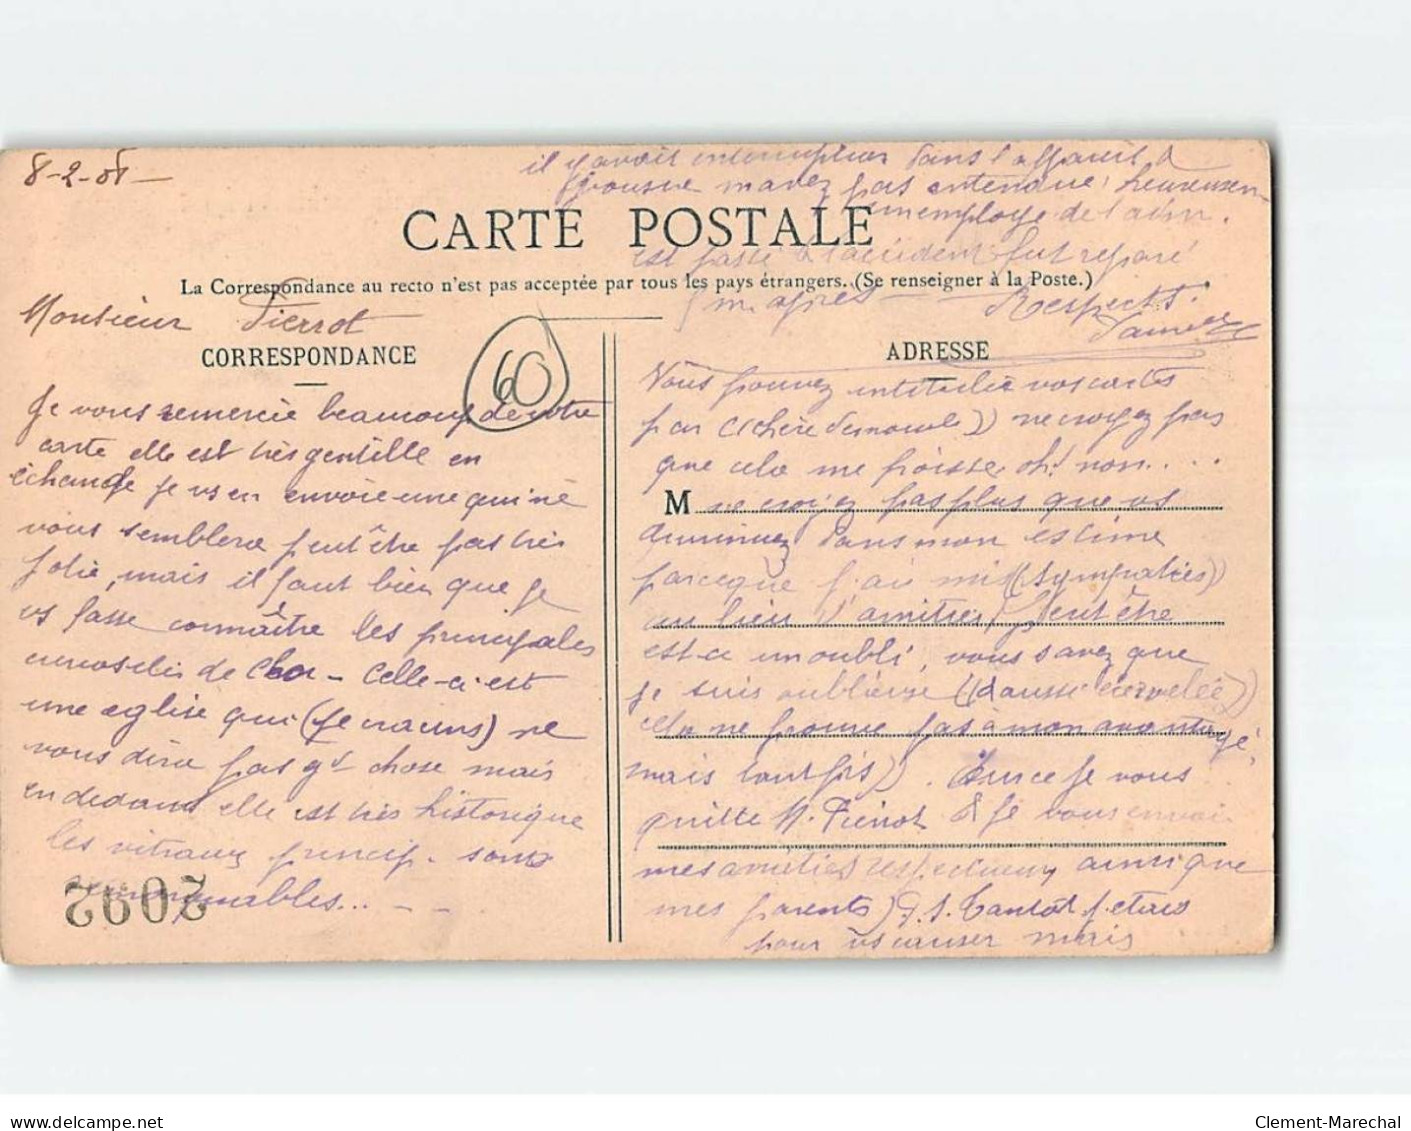 8-2-08 -
CARTE POSTALE
La Correspondance au recto n'est pas acceptée par tous les pays étrangers. (Se renseigner à la Poste.)
Monsieur Pierrot
CORRESPONDANCE
60
Je vous remercie beaucoup de votre
carte elle est très gentille en
échange je vs en envoie une qui ne
vous semblera peut être pas très
jolie, mais il faut bien que je
vs fasse connaître les principales
curiosités de - Celle-ci est
une église qui (je crains) ne
vous dira pas gd chose mais
en dedans elle est très historique
les vitraux princip. sont
remarquables... - -
2092
ADRESSE
Vous pouvez intituler vos cartes
par ((chère Demoiselle)) ne croyez pas
que cela me froisse, oh! non....
M
ne croyez pas plus que vs
diminuez dans mon estime
parceque j'ai mis ((sympathies))
au lieu d'amitiés, peut être
est-ce un oubli, vous savez que
je suis oublieuse ((
cela ne prouve pas à mon avantage,
mais tant pis)). Sur ce je vous
quitte M. Pierrot & je vous envoie
mes amitiés respectueuses ainsi que
mes parents) P.S. Tantôt j'étais
pour vs causer mais
il y avait interruption dans l'appareil &
vous ne m'avez pas entendue, heureusem
un employé de l'adm.
est passé & l'accident fut réparé
m. après - Respects.